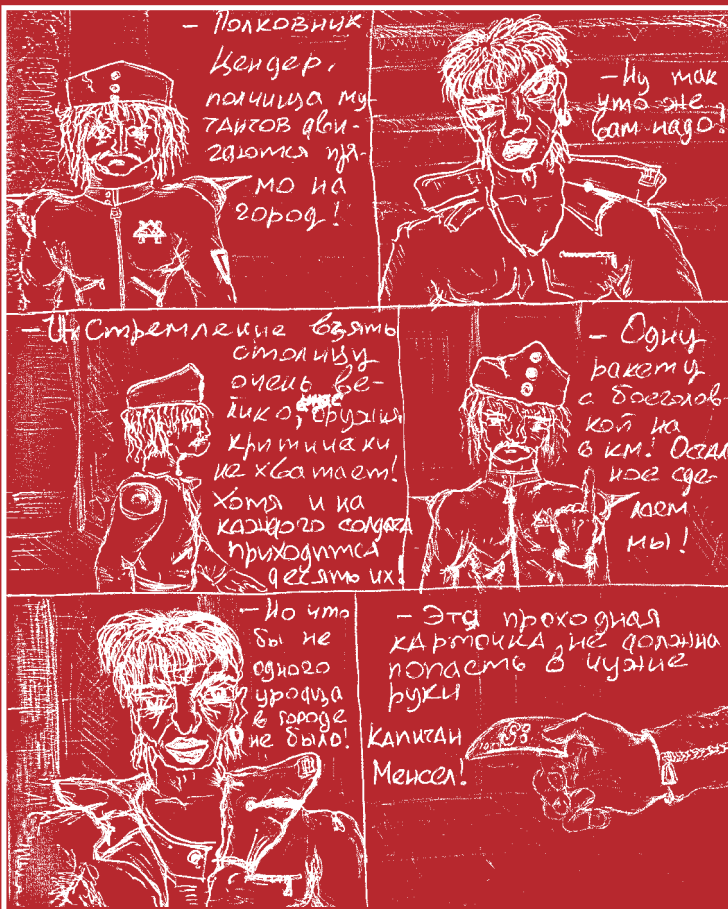 - Полковник
Цендер,
полчища му-
тантов дви-
гаются пря-
мо на
город!
- Ну так
что же
вам надо!
- Их стремление взять
столицу
очень ве-
лико, оружия
критически
не хватает!
Хотя и на
каждого солдата
приходится
десять их!
- Одну
ракету
с боеголов-
кой на
6 км! Осталь
ное сде-
лаем
мы!
- Но что
бы не
одного
уродца
в городе
не было!
- Эта проходная
карточка не должна
попасть в чужие
руки
капитан
Менсел!